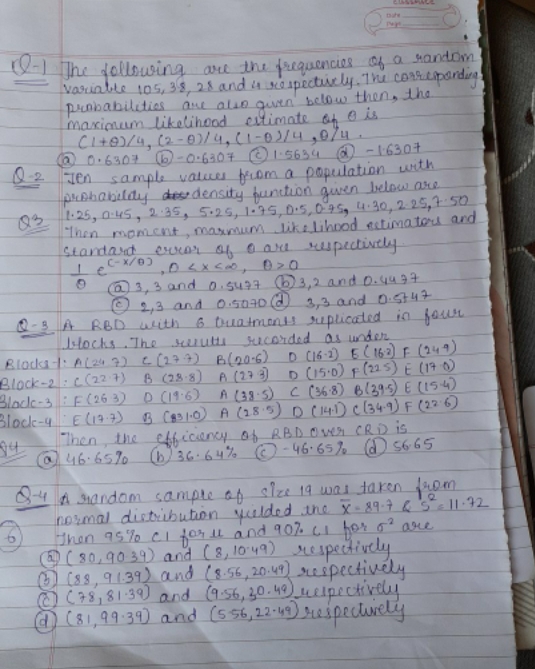 classmate
Date
Page
Q-1 The following are the frequencies of a random
variable 105, 38, 28 and 4 respectively. The corresponding
probabilities are also given below then, the
maximum likelihood estimate of θ is
(1+θ)/4, (2-θ)/4, (1-θ)/4, θ/4.
(a) 0.6307 (b) -0.6307 (c) 1.5634 (d) -1.6307
Q-2 Ten sample values from a population with
probability density function given below are
1.25, 0.45, 2.35, 5.25, 1.75, 0.5, 0.75, 4.30, 2.25, 7.50
Q3 Then moment, maximum likelihood estimators and
standard error of θ are respectively
1/θ e^(-x/θ), 0 < x < ∞, θ > 0
(a) 3, 3 and 0.5477 (b) 3, 2 and 0.4477
(c) 2, 3 and 0.5070 (d) 3, 3 and 0.5747
Q-3 A RBD with 6 treatments replicated in four
blocks. The results recorded as under
Blocks-1: A(24.7) C(27.7) B(20.6) D(16.2) E(16.2) F(24.9)
Block-2: C(22.7) B(28.8) A(27.3) D(15.0) F(22.5) E(17.0)
Block-3: F(26.3) D(19.6) A(38.5) C(36.8) B(39.5) E(15.4)
Block-4: E(17.7) B(31.0) A(28.5) D(14.1) C(34.9) F(22.6)
Then, the efficiency of RBD over CRD is
Q4 (a) 46.65% (b) 36.64% (c) -46.65% (d) 56.65
Q-4 A random sample of size 19 was taken from
normal distribution yielded the x̄ = 89.7 & S² = 11.72
6 Then 95% CI for μ and 90% CI for σ² are
(a) (80, 90.39) and (8, 10.49) respectively
(b) (88, 91.39) and (8.56, 20.49) respectively
(c) (78, 81.39) and (9.56, 30.49) respectively
(d) (81, 99.39) and (5.56, 22.49) respectively